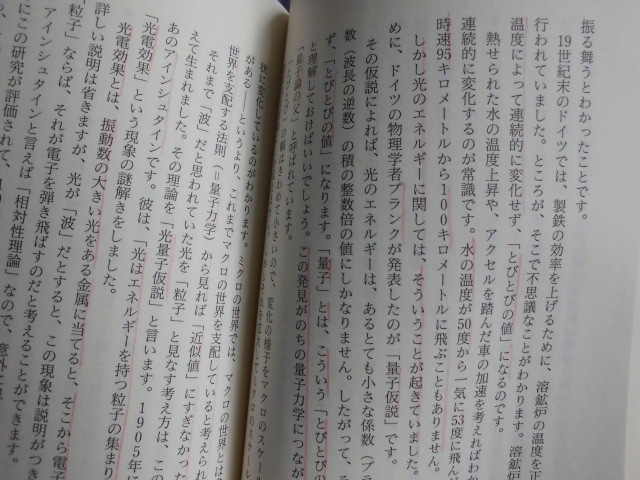 振る舞うとわかったことです。
19世紀末のドイツでは、製鉄の効率を上げるために、溶鉱炉の温度を正
行われていました。ところが、そこで不思議なことがわかります。溶鉱炉
温度によって連続的に変化せず、「とびとびの値」になるのです。
熱せられた水の温度上昇や、アクセルを踏んだ車の加速を考えればわか
連続的に変化するのが常識です。水の温度が50度から一気に53度に飛んだ
時速95キロメートルから100キロメートルに飛ぶこともありません。
しかし光のエネルギーに関しては、そういうことが起きていました。
めに、ドイツの物理学者プランクが発表したのが「量子仮説」です。
その仮説によれば、光のエネルギーは、あるとても小さな係数（プラ
数（波長の逆数）の積の整数倍の値にしかなりません。したがって、そ
ず、「とびとびの値」になります。「量子」とは、こういう「とびとびの
と理解しておけばいいでしょう。この発見がのちの量子力学につなが
「量子論の父」と呼ばれています。
の幅はきわめて小さいので、変化の様子をマクロのスケール
的に変化しているのがわかります。ミクロの世界では、
がある――というより、これまでマクロの世界を支配していると考えられ
世界を支配する法則（＝量子力学）から見れば「近似値」にすぎなかった
それまで「波」だと思われていた光を「粒子」と見なす考え方は、この
えて生まれました。その理論を「光量子仮説」と言います。1905年に
あのアインシュタインです。彼は、「光はエネルギーを持つ粒子の集まり
「光電効果」という現象の謎解きをしました。
光電効果とは、振動数の大きい光をある金属に当てると、そこから電子
詳しい説明は省きますが、光が「波」だとすると、この現象は説明がつき
「粒子」ならば、それが電子を弾き飛ばすのだと考えることができます。
アインシュタインと言えば「相対性理論」なので、意外に
にこの研究が評価されて、